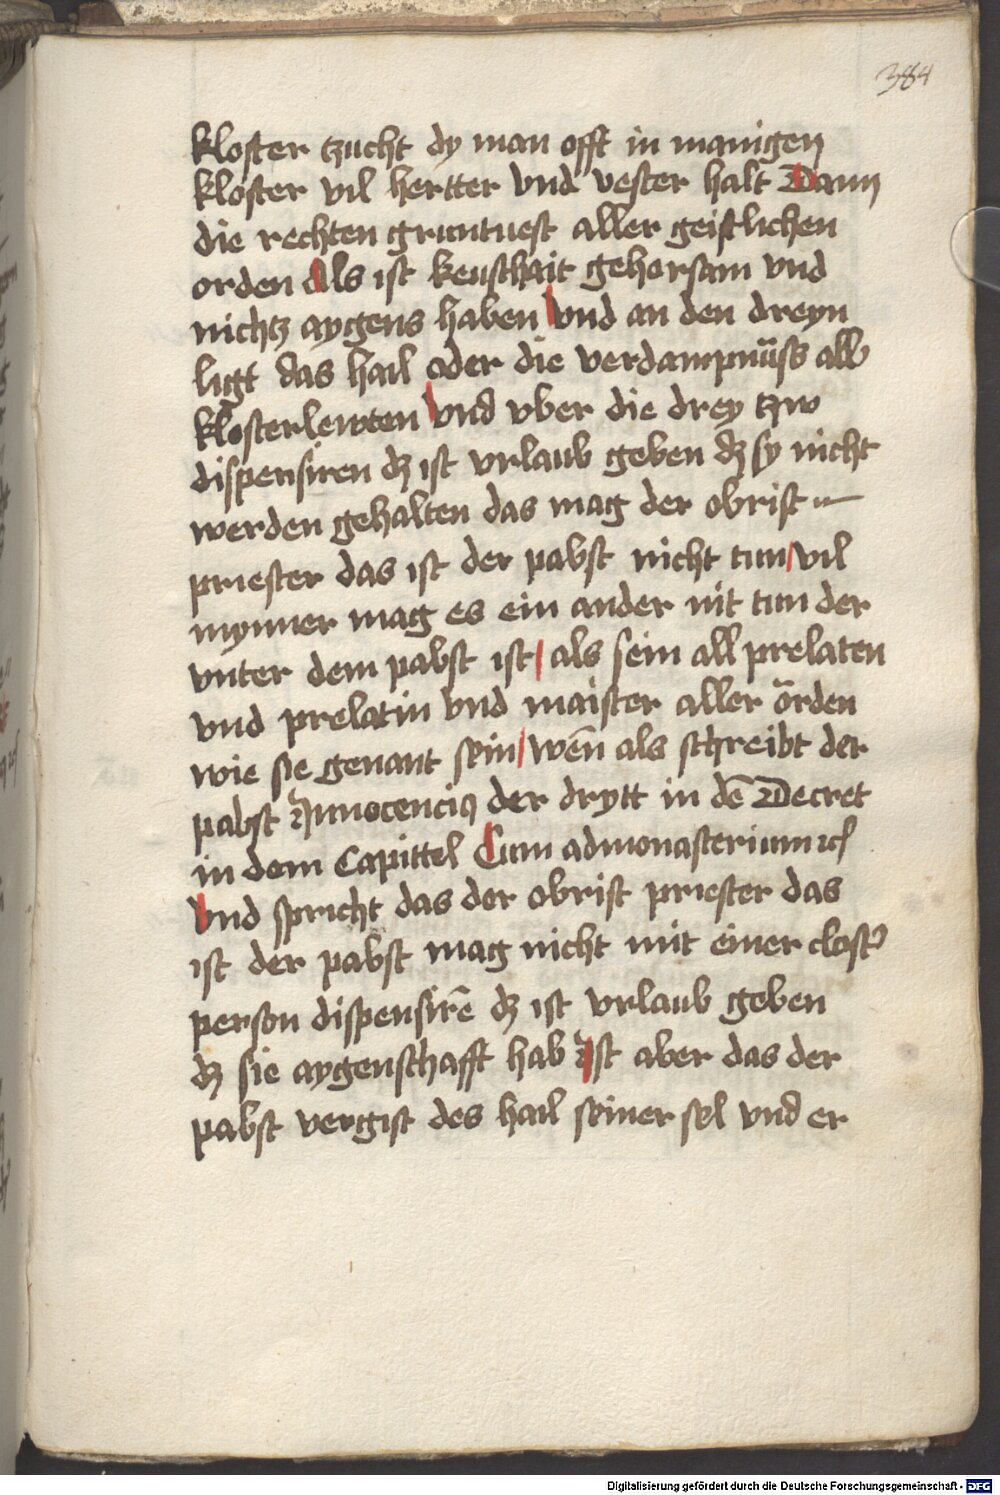 384
kloster tzucht dy man offt in manigen
kloster vil hertter vnd vester halt Dann
die rechten gruntuest aller geistlichen
orden Als ist keuschait gehorsam vnd
nichtz aygens haben Vnd an den dreyn
ligt das hail oder die verdampnüss all
klosterlewten Vnd vber die drey tzw
dispensiren dz ist vrlaub geben dz sy nicht
werden gehalten das mag der obrist
priester das ist der pabst nicht tun / vil
mynner mag es ein ander nit tun der
vnter dem pabst ist / als sein all prelaten
vnd prelatin vnd maister aller örden
wie sie genant sein / wēn als schreibt der
pabst Innocencius der drytt in dē Decret
in dem Capittel Cum ad monasterium rc
Vnd spricht das der obrist priester das
ist der pabst mag nicht mit einer closter
person dispensirē dz ist vrlaub geben
dz sie aygenschafft hab Ist aber das der
pabst vergist des hail seiner sel vnd er
Digitalisierung gefördert durch die Deutsche Forschungsgemeinschaft - DFG